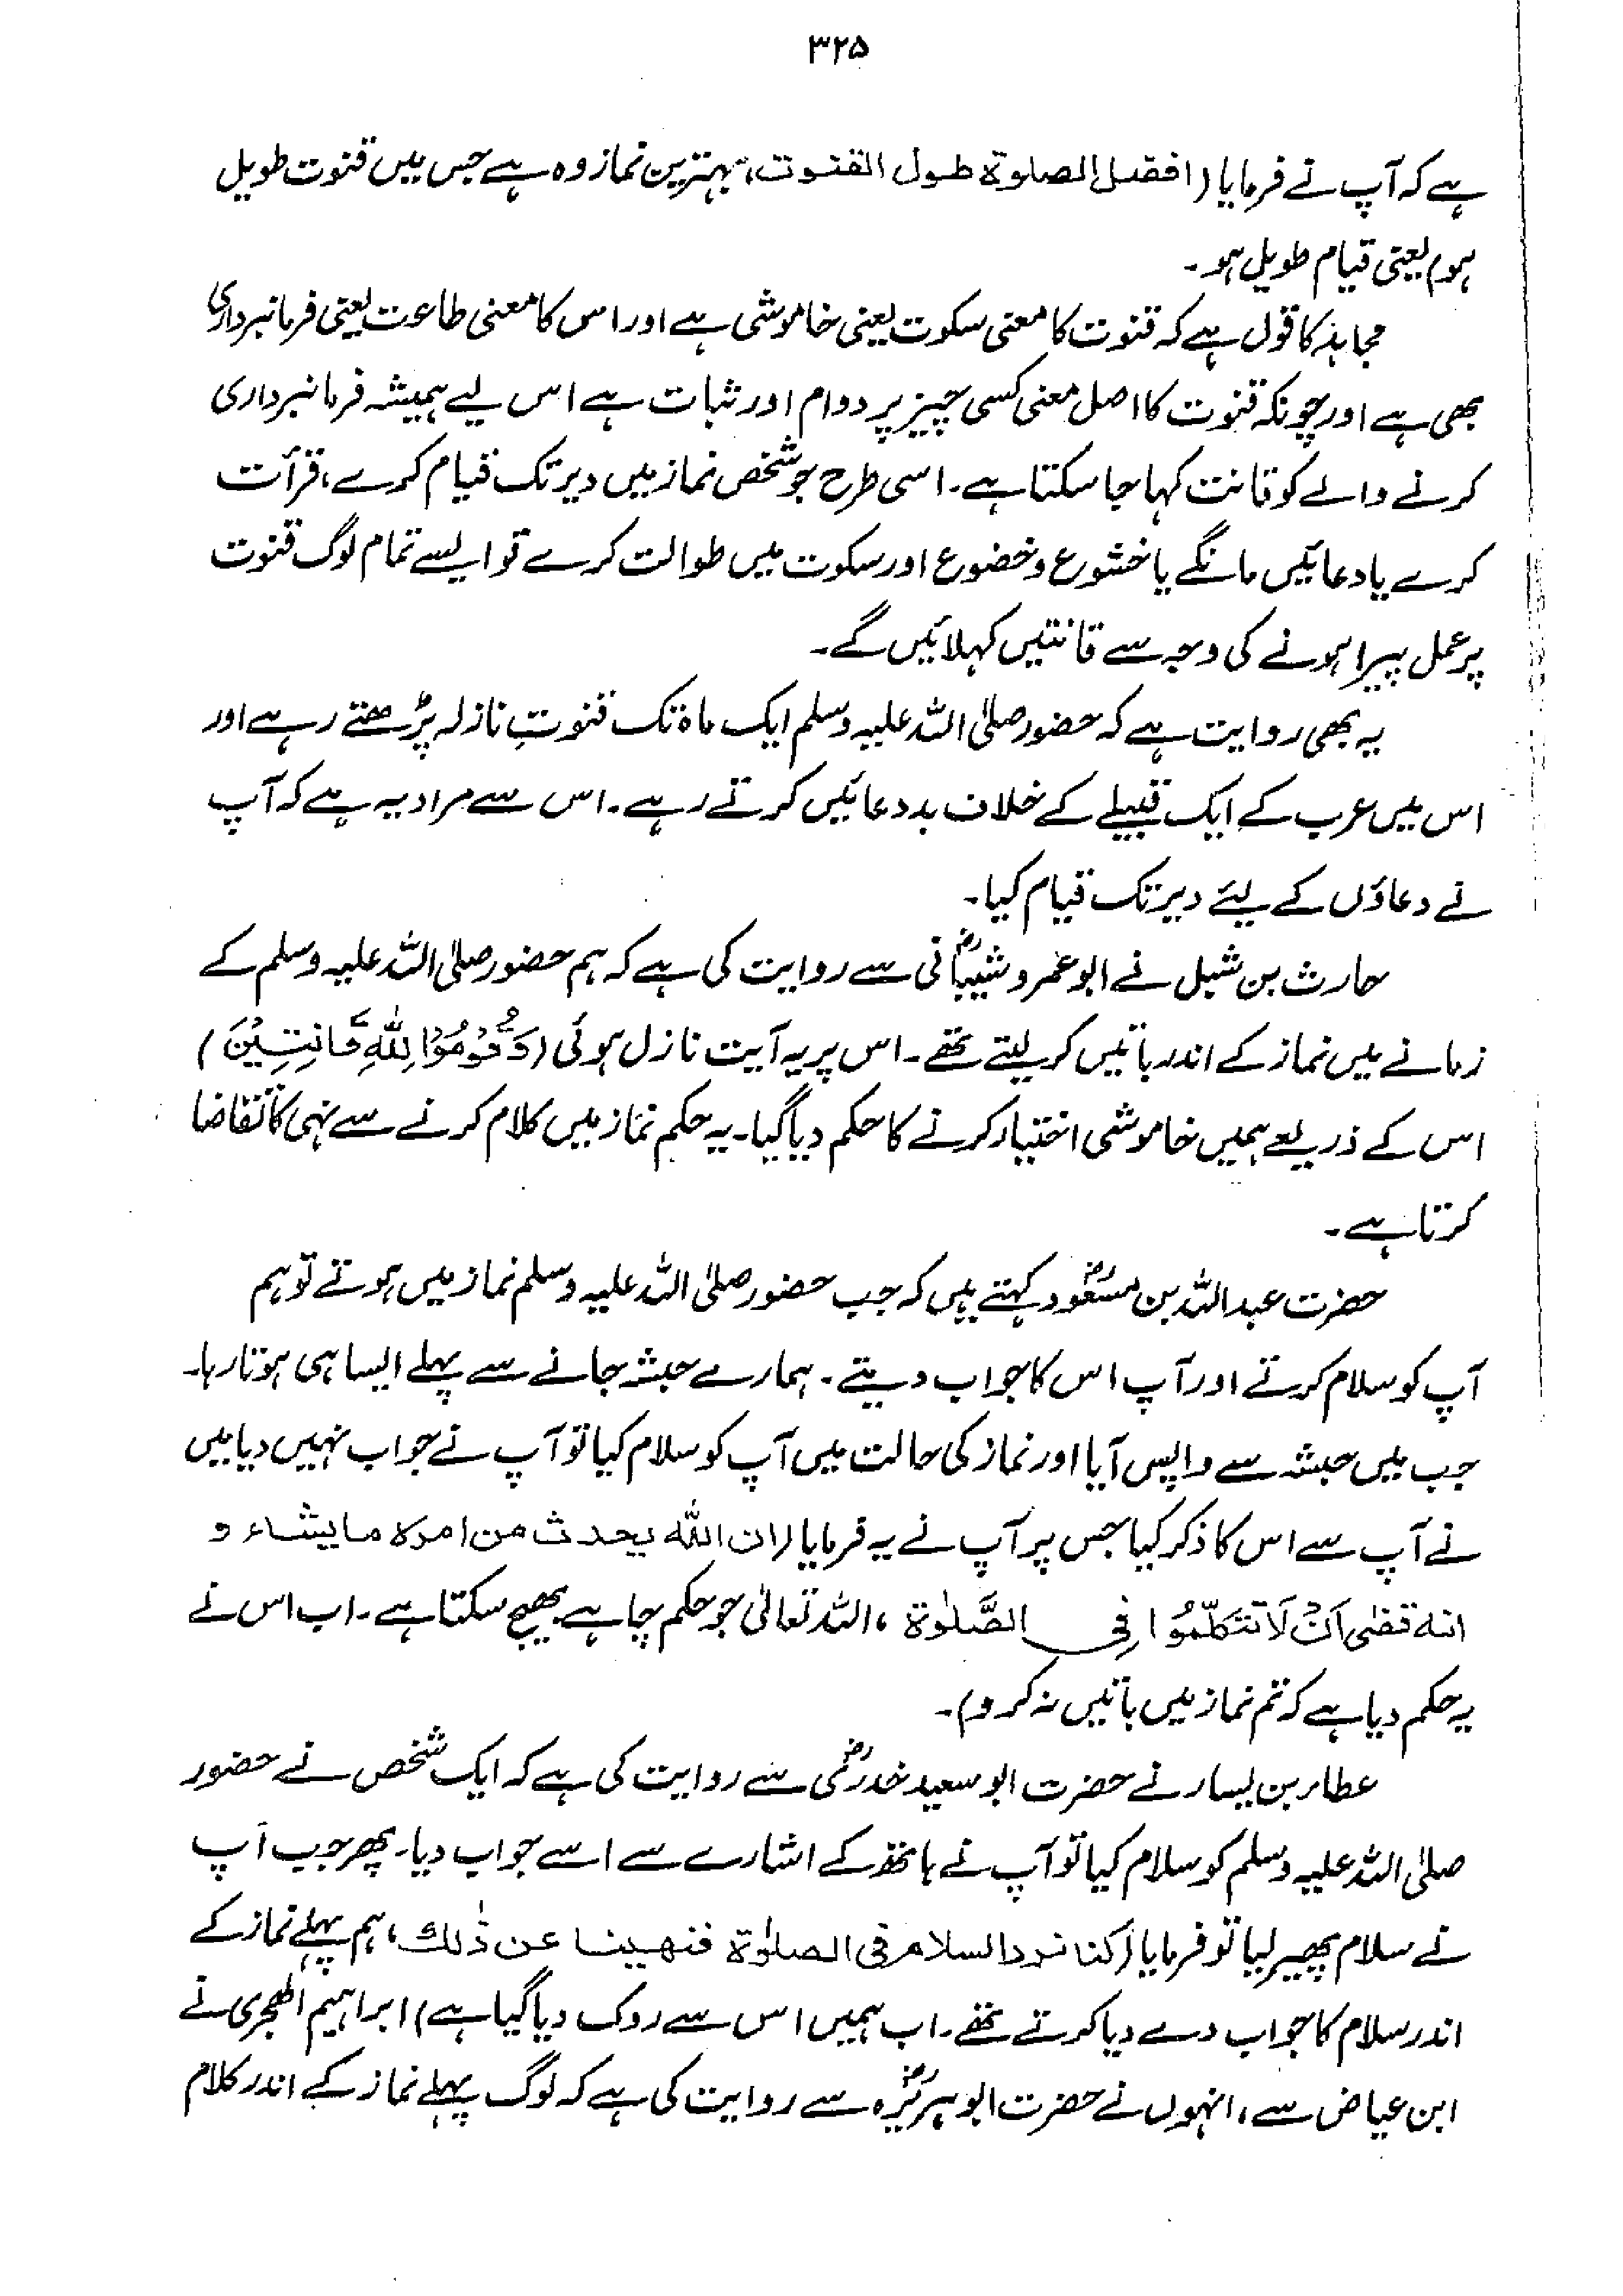 ۳۲۵
ہے کہ آپ نے فرمایا (افضل الصلوة طول القنوت، بہترین نماز وہ ہے جس میں قنوت طویل
ہو) یعنی قیام طویل ہو۔
مجاہد کا قول ہے کہ قنوت کا معنی سکوت یعنی خاموشی ہے اور اس کا معنی طاعت یعنی فرمانبرداری
بھی ہے اور چونکہ قنوت کا اصل معنی کسی چیز پر دوام اور ثبات ہے اس لیے ہمیشہ فرمانبرداری
کرنے والے کو قانت کہا جا سکتا ہے۔ اسی طرح جو شخص نماز میں دیر تک قیام کرے، قرأت
کرے یا دعائیں مانگے یا خشوع و خضوع اور سکوت میں طوالت کرے تو ایسے تمام لوگ قنوت
پر عمل پیرا ہونے کی وجہ سے قانتیں کہلائیں گے۔
یہ بھی روایت ہے کہ حضور صلی اللہ علیہ وسلم ایک ماہ تک قنوتِ نازلہ پڑھتے رہے اور
اس میں عرب کے ایک قبیلے کے خلاف بددعائیں کرتے رہے۔ اس سے مراد یہ ہے کہ آپ
نے دعاؤں کے لئے دیر تک قیام کیا۔
حارث بن شبل نے ابو عمرو شیبانیؓ سے روایت کی ہے کہ ہم حضور صلی اللہ علیہ وسلم کے
زمانے میں نماز کے اندر باتیں کر لیتے تھے۔ اس پر یہ آیت نازل ہوئی (وَقُوْمُوْا لِلّٰهِ قَانِتِيْنَ)
اس کے ذریعے ہمیں خاموشی اختیار کرنے کا حکم دیا گیا۔ یہ حکم نماز میں کلام کرنے سے نہی کا تقاضا
کرتا ہے۔
حضرت عبداللہ بن مسعودؓ کہتے ہیں کہ جب حضور صلی اللہ علیہ وسلم نماز میں ہوتے تو ہم
آپ کو سلام کرتے اور آپ اس کا جواب دیتے۔ ہمارے حبشہ جانے سے پہلے ایسا ہی ہوتا رہا۔
جب میں حبشہ سے واپس آیا اور نماز کی حالت میں آپ کو سلام کیا تو آپ نے جواب نہیں دیا میں
نے آپ سے اس کا ذکر کیا جس پر آپ نے یہ فرمایا (ان الله يحدث من امره ما يشاء و
انه قضى اَنْ لَا تَتَكَلَّمُوْا فِي الصَّلوٰة، اللہ تعالیٰ جو حکم چاہے بھیج سکتا ہے۔ اب اس نے
یہ حکم دیا ہے کہ تم نماز میں باتیں نہ کرو)۔
عطاء بن یسار نے حضرت ابو سعید خدریؓ سے روایت کی ہے کہ ایک شخص نے حضور
صلی اللہ علیہ وسلم کو سلام کیا تو آپ نے ہاتھ کے اشارے سے اسے جواب دیا۔ پھر جب آپ
نے سلام پھیر لیا تو فرمایا (كنا نرد السلام فى الصلوٰة فنهينا عن ذٰلك، ہم پہلے نماز کے
اندر سلام کا جواب دے دیا کرتے تھے۔ اب ہمیں اس سے روک دیا گیا ہے) ابراہیم الھجری نے
ابن عیاض سے، انہوں نے حضرت ابو ہریرہؓ سے روایت کی ہے کہ لوگ پہلے نماز کے اندر کلام